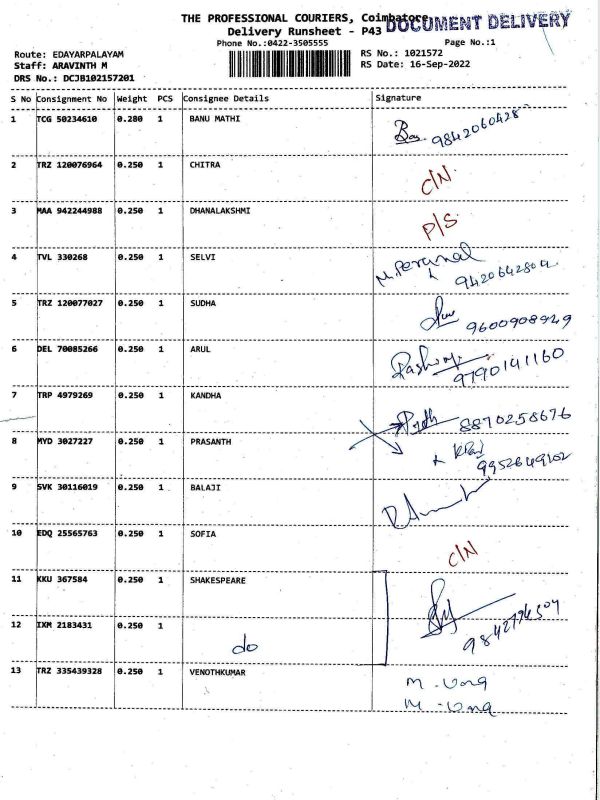 THE PROFESSIONAL COURIERS, Coimbatore
DOCUMENT DELIVERY
Delivery Runsheet - P43
Phone No.:0422-3505555
Page No.:1
Route: EDAYARPALAYAM
RS No.: 1021572
Staff: ARAVINTH M
RS Date: 16-Sep-2022
DRS No.: DCJB102157201
S No Consignment No Weight PCS Consignee Details Signature
1 TCG 50234610 0.280 1 BANU MATHI
2 TRZ 120076964 0.250 1 CHITRA C/N
3 MAA 942244988 0.250 1 DHANALAKSHMI P/S
4 TVL 330268 0.250 1 SELVI
5 TRZ 120077027 0.250 1 SUDHA 9600908949
6 DEL 70085266 0.250 1 ARUL 9790141160
7 TRP 4979269 0.250 1 KANDHA 8870258676
8 MYD 3027227 0.250 1 PRASANTH
9 SVK 30116019 0.250 1 BALAJI
10 EDQ 25565763 0.250 1 SOFIA C/N
11 KKU 367584 0.250 1 SHAKESPEARE
12 IXM 2183431 0.250 1 do
13 TRZ 335439328 0.250 1 VENOTHKUMAR